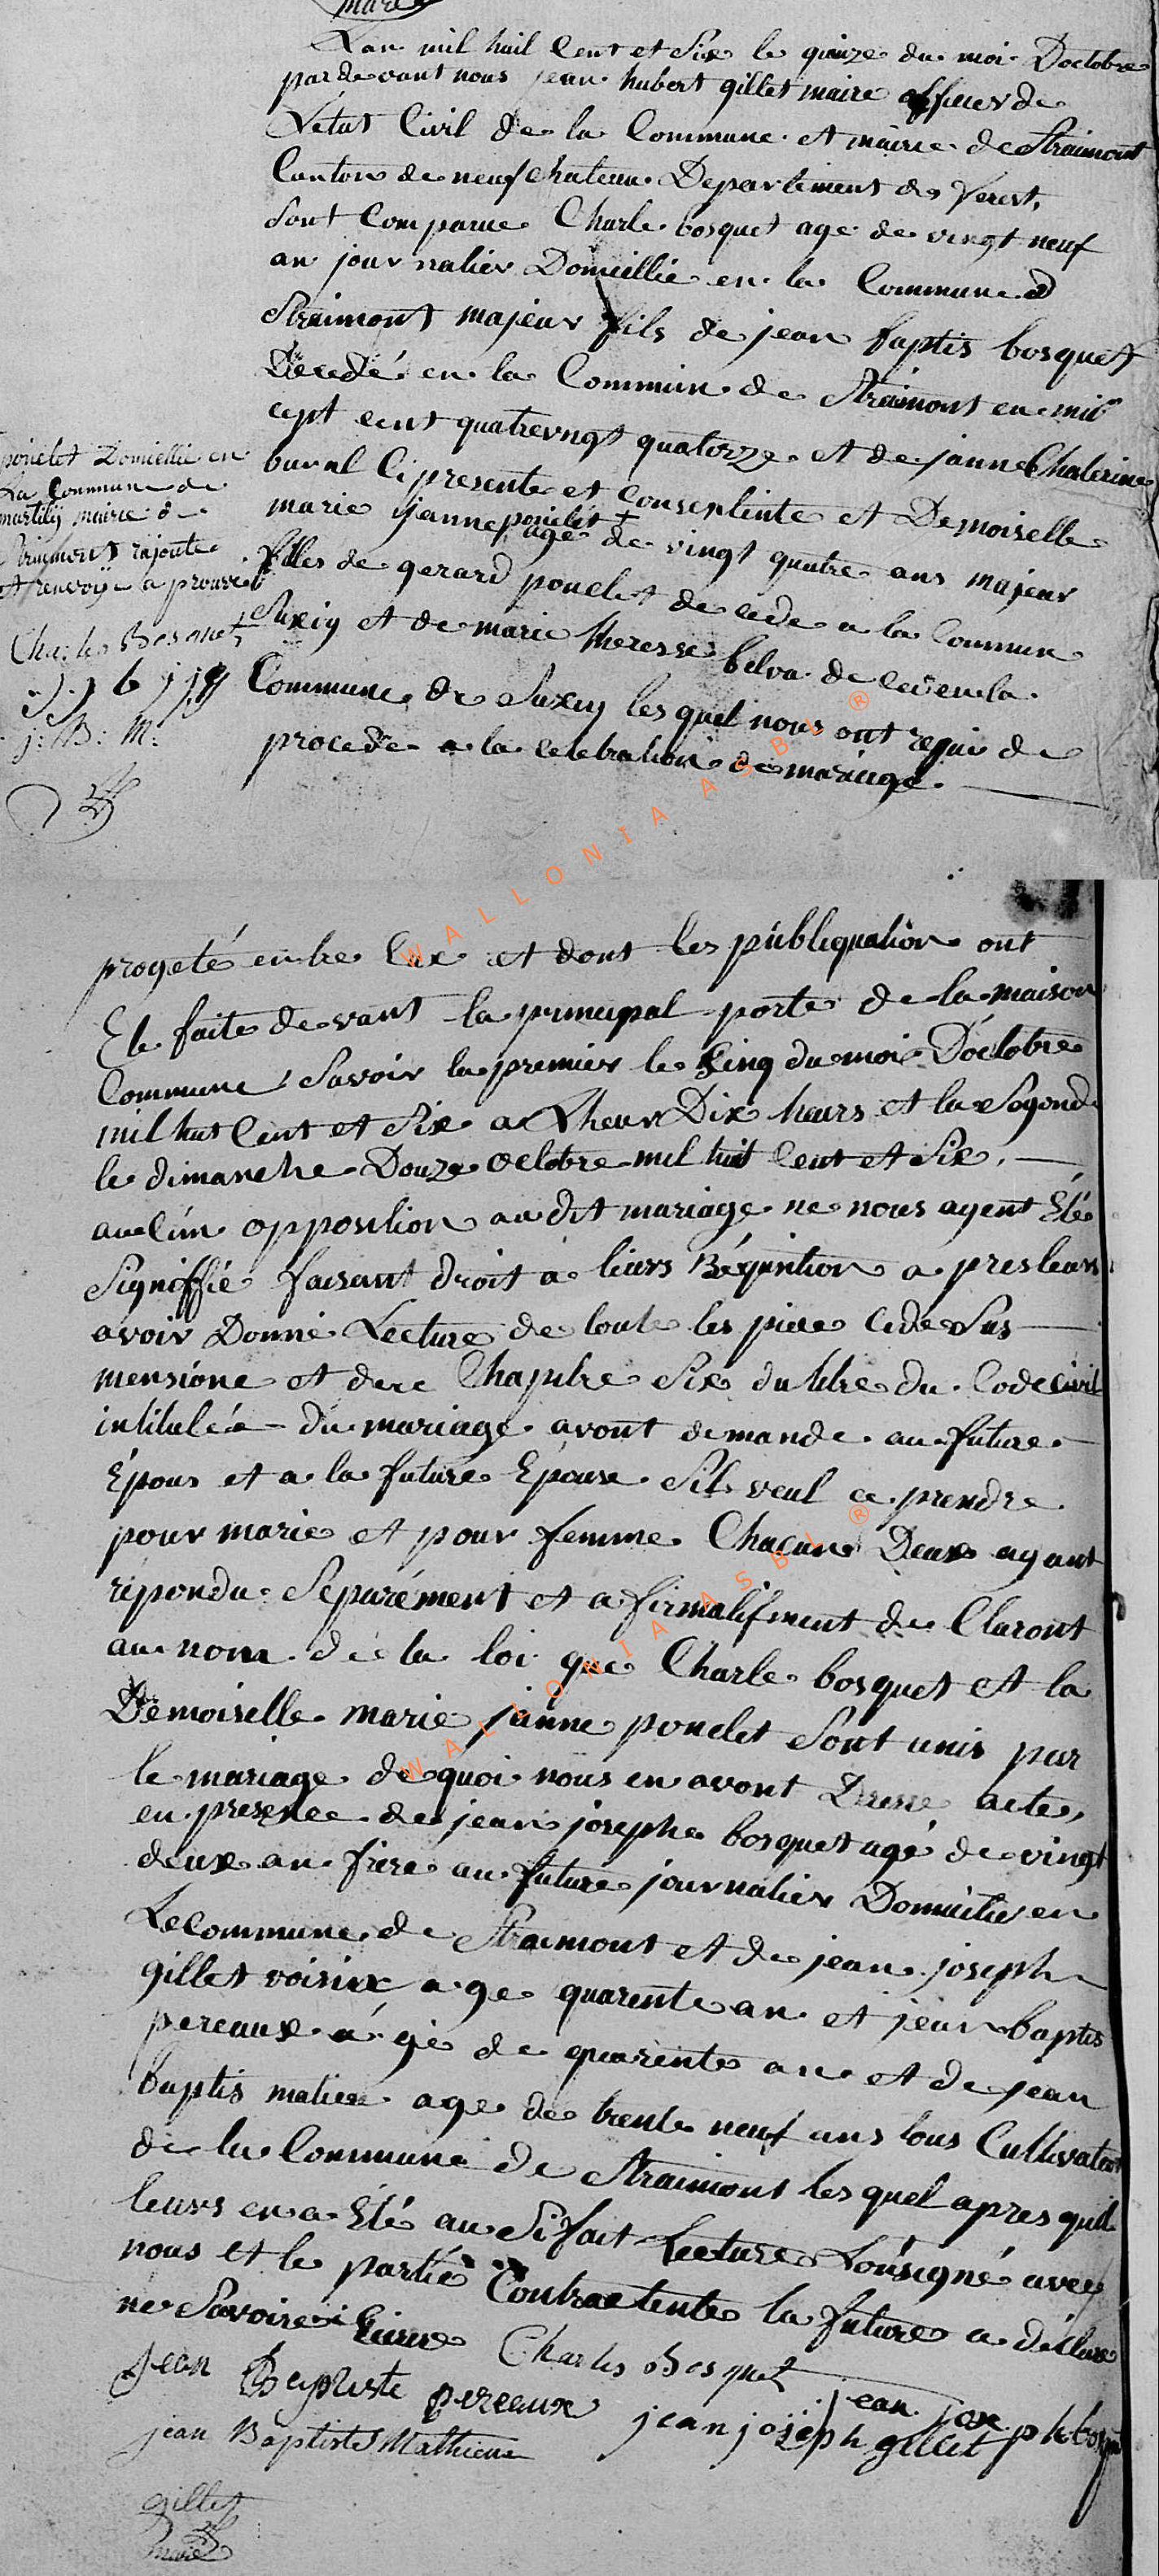 maire
Lan mil huil Cent et Six le quinze du moi Doctobre
pardevant nous jean hubert gillet maire officier de
Létat Civil de la Commune et mairie de Straimont
Canton de neufchateau Departement de
Sont Comparue Charle bosquet age de vingt neuf
an journalier Domicillie en la Commune d
Straimont majeur fils de jean baptis bosquet
Décedé en la Commun de Straimont en mil
cept cent quatrevingt quatorzze et de janne Chaterine
buval Ci presente et Consentente et Demoiselle
marie janne poncelet + age de vingt quatre ans majeur
filles de gerard poncelet de cede a la Commun
Suxiy et de marie theresse belva de cede en la
Commune de Suxuy les quel nous ont requi de
procede a la celebration de mariage
poncelet Domicillie en
La Commune de
martilij mairie d
Straimont rajoute
et renvoÿe a prouvé
Charles Bosquet
j. j b j j g
j: B: M:
progeté entre Eux et dont les publiquation ont
Ete faite devant la principal porte de la maison
Commune Savoir la premier le Cinq du moi Doctobre
mil hut Cent et Six a Lheur Dix heurs et la Segond
le dimanche Douze octobre mil huit Cent et Six
aucûn opposition au dit mariage ne nous ayent Eté
Signiffié faisant droit a leurs Réquintion a pres leurs
avoir Donné Lecture de toute les piece Cidesus
mensione et de Chapitre Six du titre du Code Civil
intitulée du mariage avont demande au future
Epous et a la future Epouse Sil veul ce prendre
pour marie et pour femme Chacune Deux ayant
répondu Séparément et afirmatifment de Claront
au nom de la loi que Charle bosquet et la
Demoiselle marie janne poncelet Sont unis par
le mariage de quoi nous en avont Dresse acte
en presence de jean josephe bosquet agé de vingt
deux an frere au future journalier Domicilie en
Lecommune de Straimont et de jean joseph
gillet voisin age quarente an et jean baptis
pereaux a gé de quarente an et de jean
baptis matieu age de trente neuf ans tous Cultivateur
de la Commune de Straimont les quel apres quil
leurs en a Eté au Si fait Lecture Lonsigné avec
nous et le partie Contractente la future a déclare
ne Savoire
Charles Bosquet
jean Baptiste pereaux
jean joseph bosquet
jean joseph gillet
jean Baptiste Mathieu
gillet
maire
WALLONIA ASBL ®
WALLONIA ASBL ®